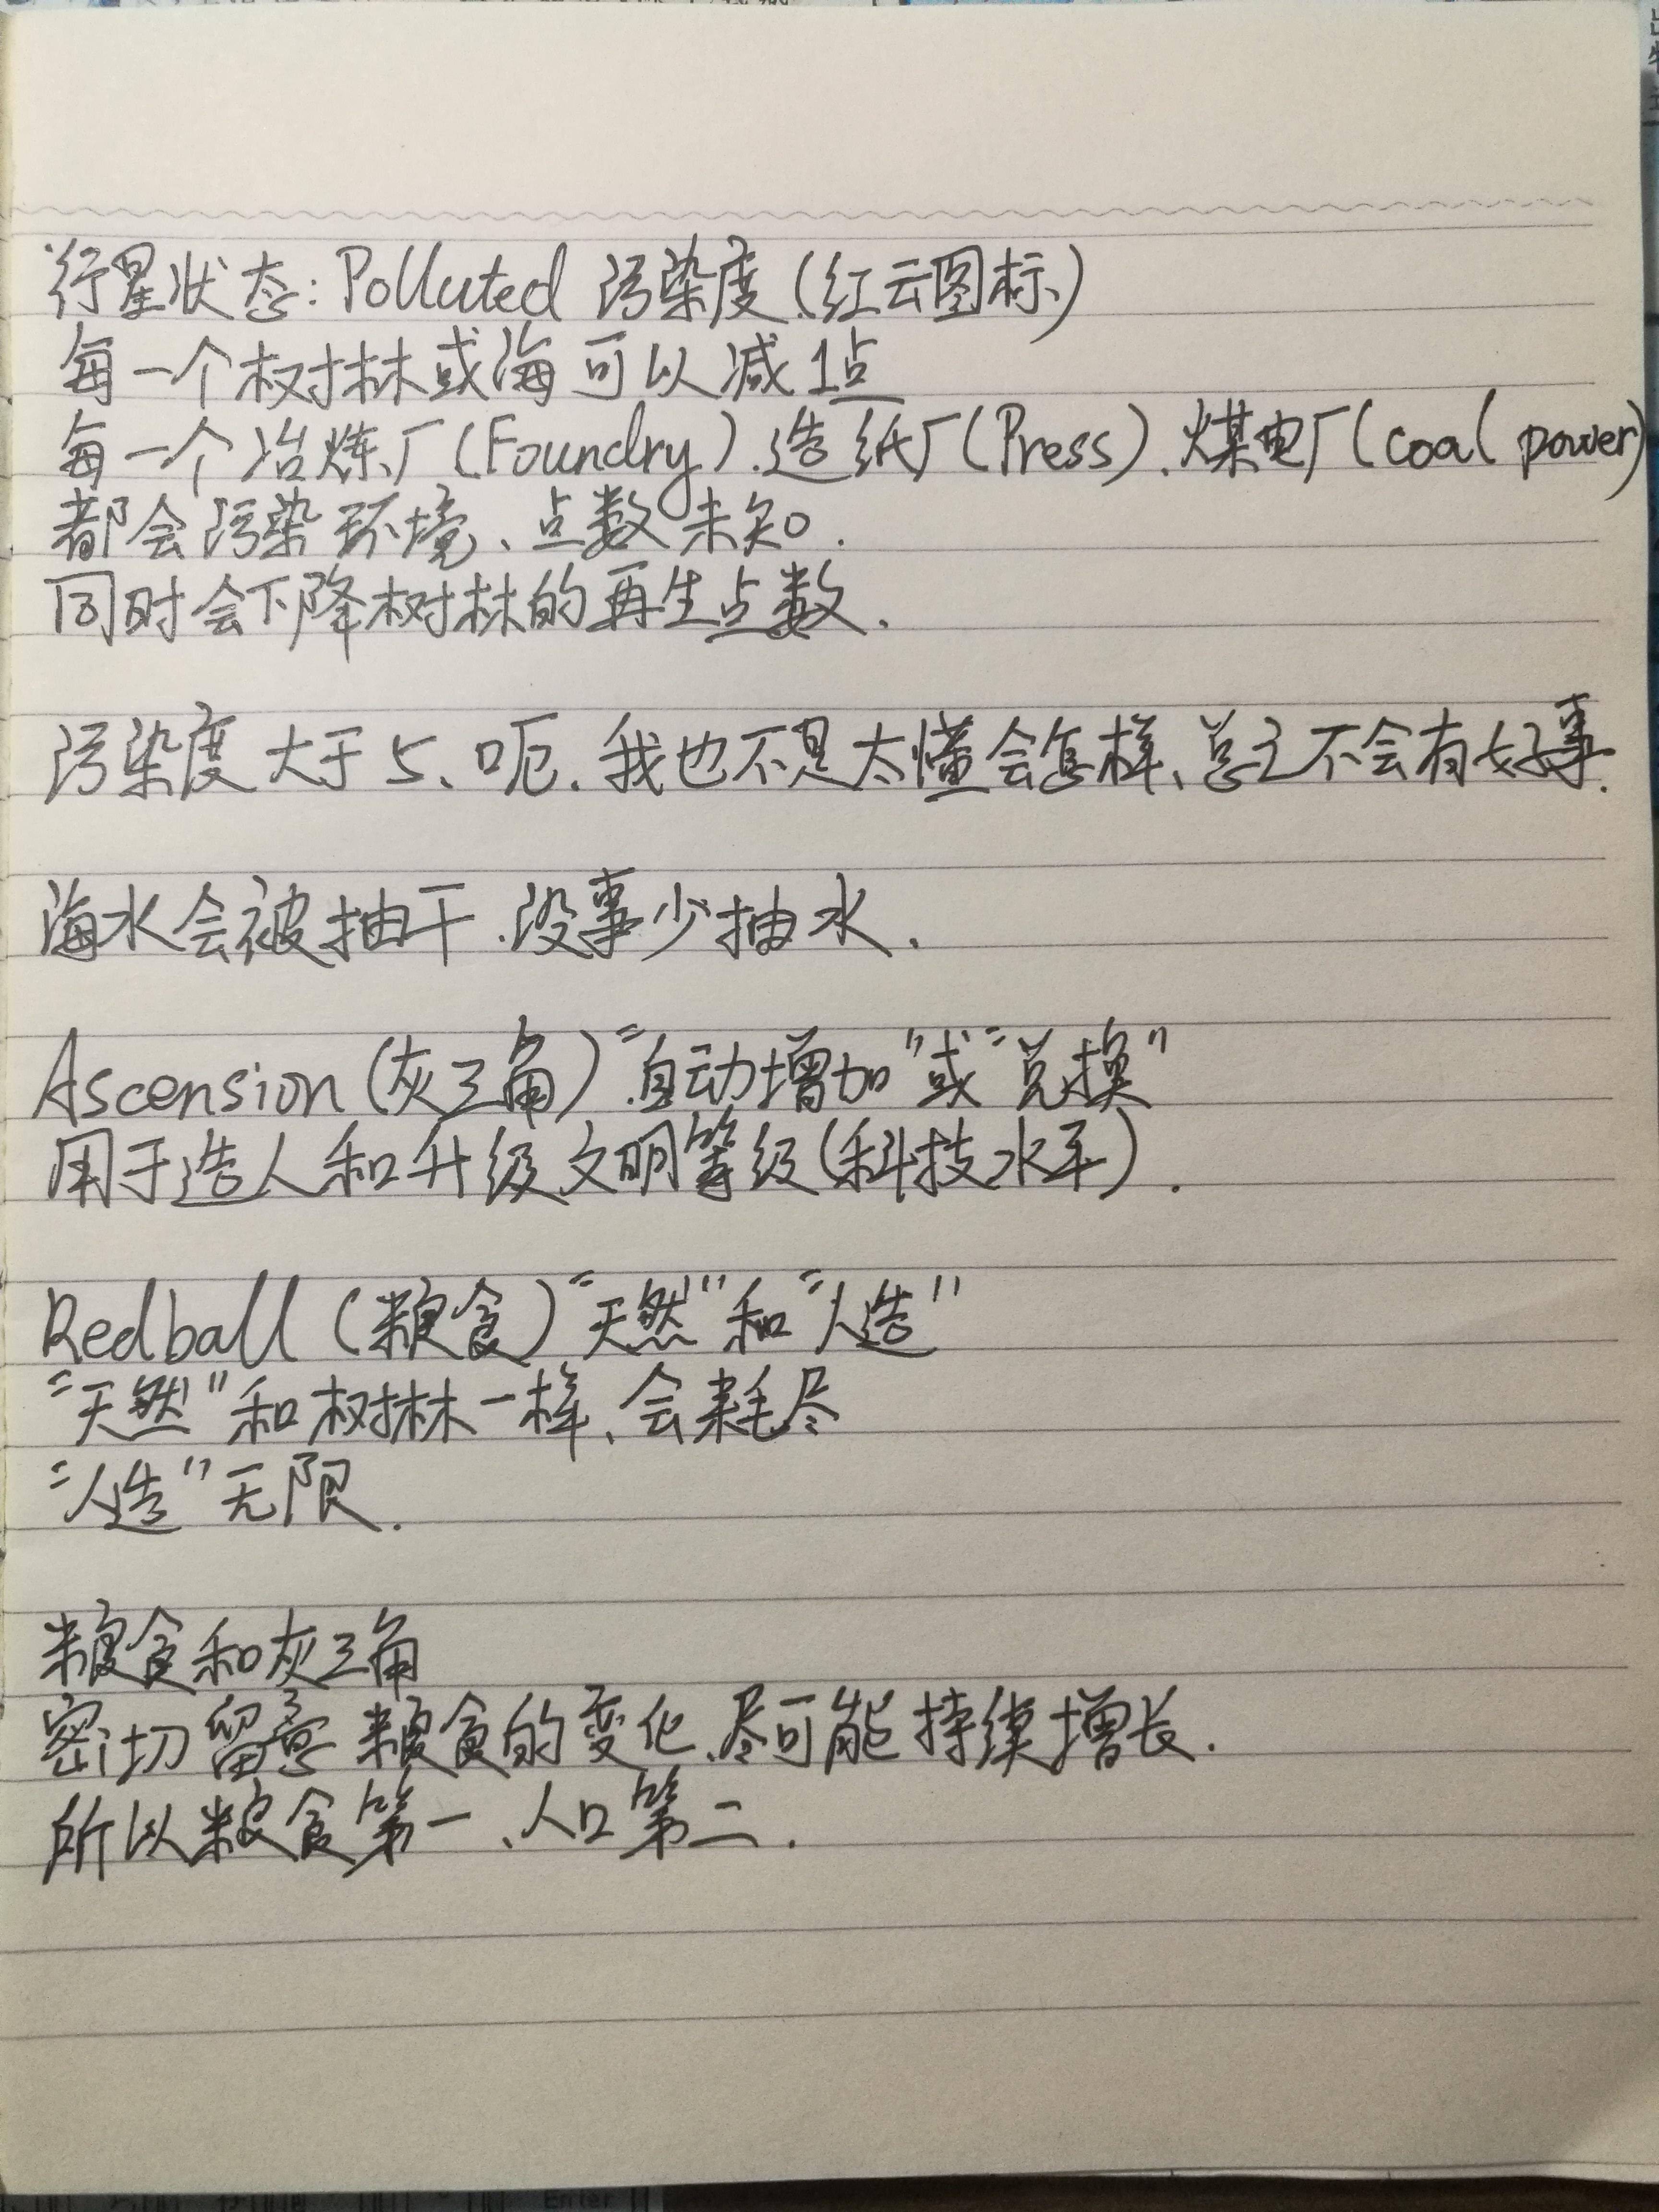 行星状态:Polluted 污染度(红云图标)
每一个树林或海可以减1点
每一个冶炼厂(Foundry).造纸厂(Press).煤电厂(coal power)
都会污染环境、点数未知.
同时会下降树林的再生点数.
污染度大于5、呃.我也不是太懂会怎样、总之不会有好事.
海水会被抽干.没事少抽水.
Ascension(灰三角)"自动增加"或"兑换"
用于造人和升级文明等级(科技水平).
Redball(粮食)"天然"和"人造"
"天然"和树林一样、会耗尽
"人造"无限.
粮食和灰三角
密切留意粮食的变化.尽可能持续增长.
所以粮食第一、人口第二.
Enter